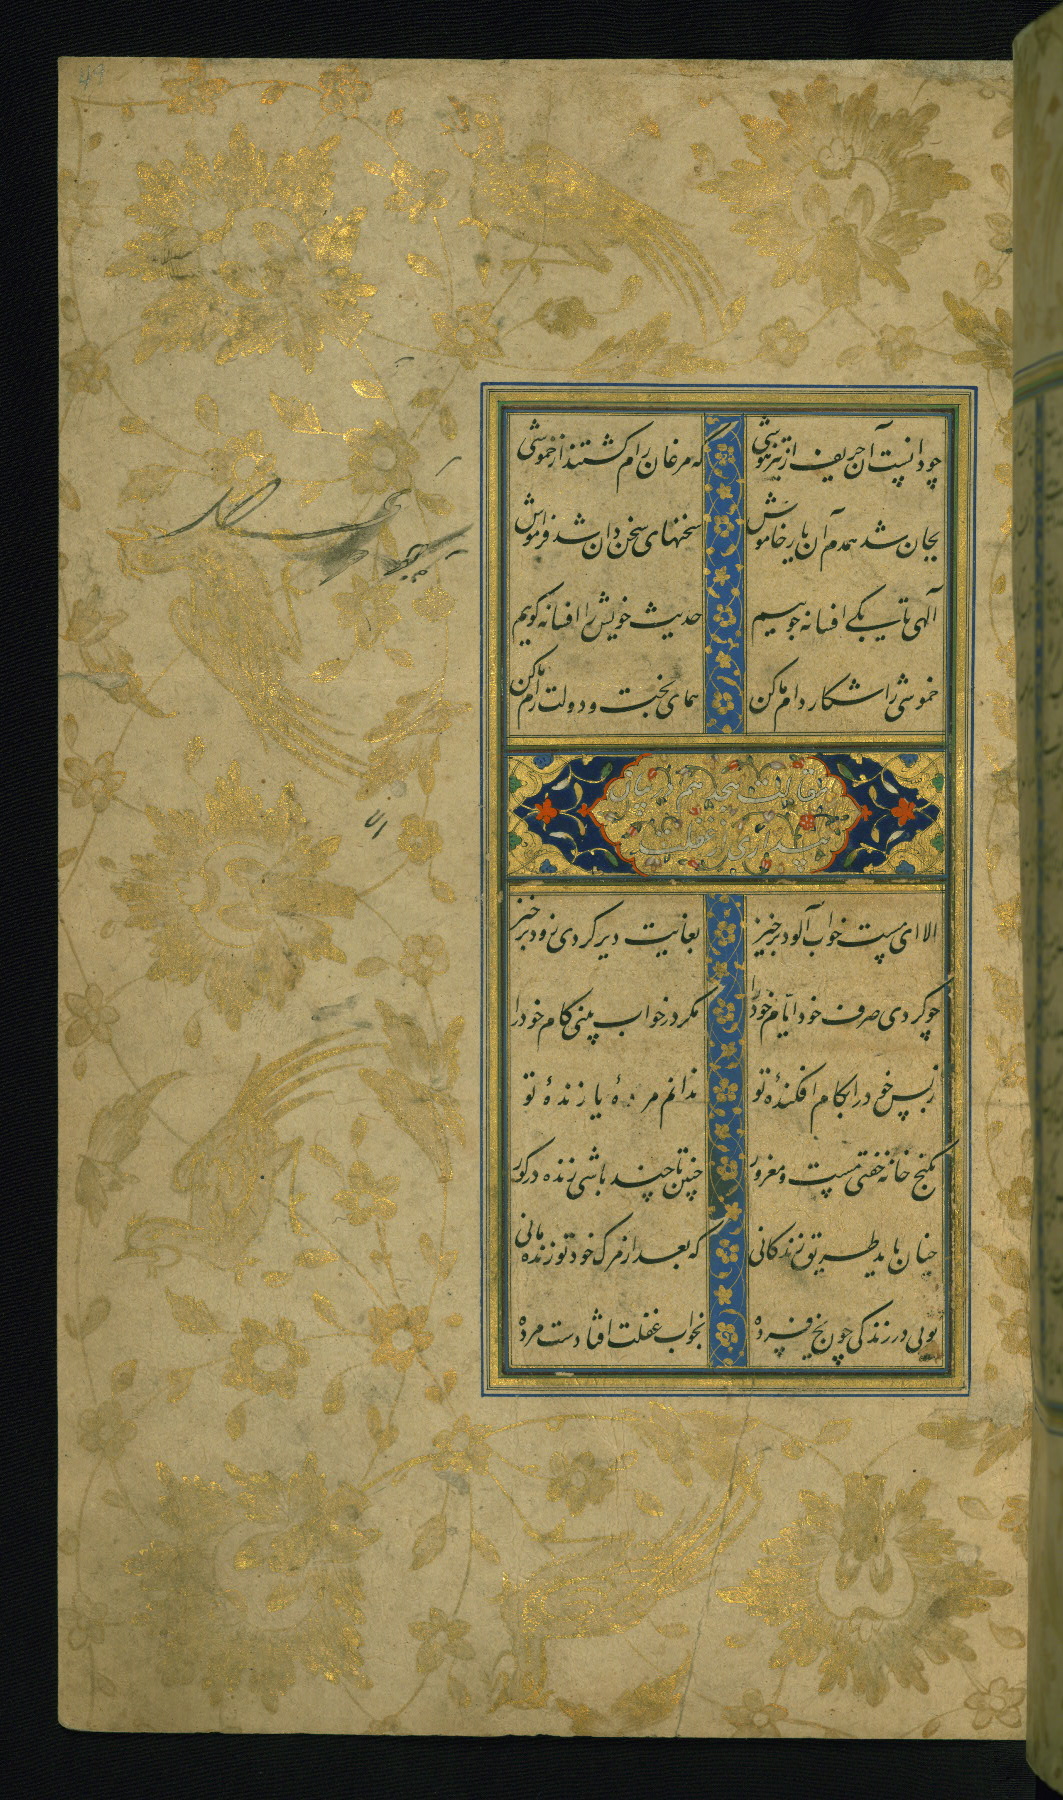 چو دانست آن حریف از تیزهوشی که مرغان رام گشتند از خموشی
بجان شد همدم آن یار خاموش سخنهای سخن دان شد فراموش
الهی تا بکی افسانه جوییم حدیث خویش را افسانه گوییم
خموشی را شکار دام ما کن همای بخت و دولت رام ما کن
مقالت هجدهم در بیان
بیداری از غفلت
الا ای مست خواب آلود برخیز بغایت دیر کردی زود برخیز
چو کردی صرف خود ایام خود را مگر در خواب بینی کام خود را
ز بس خود را بکام افکندهٔ تو ندانم مردهٔ یا زندهٔ تو
بکنج خانه خفتی مست و مغرور چنین تا چند باشی زنده در گور
چنان باید طریق زندگانی که بعد از مرگ خود تو زنده مانی
بوبی در زندگی چون یخ فسرده بخواب غفلت افتادست مرده